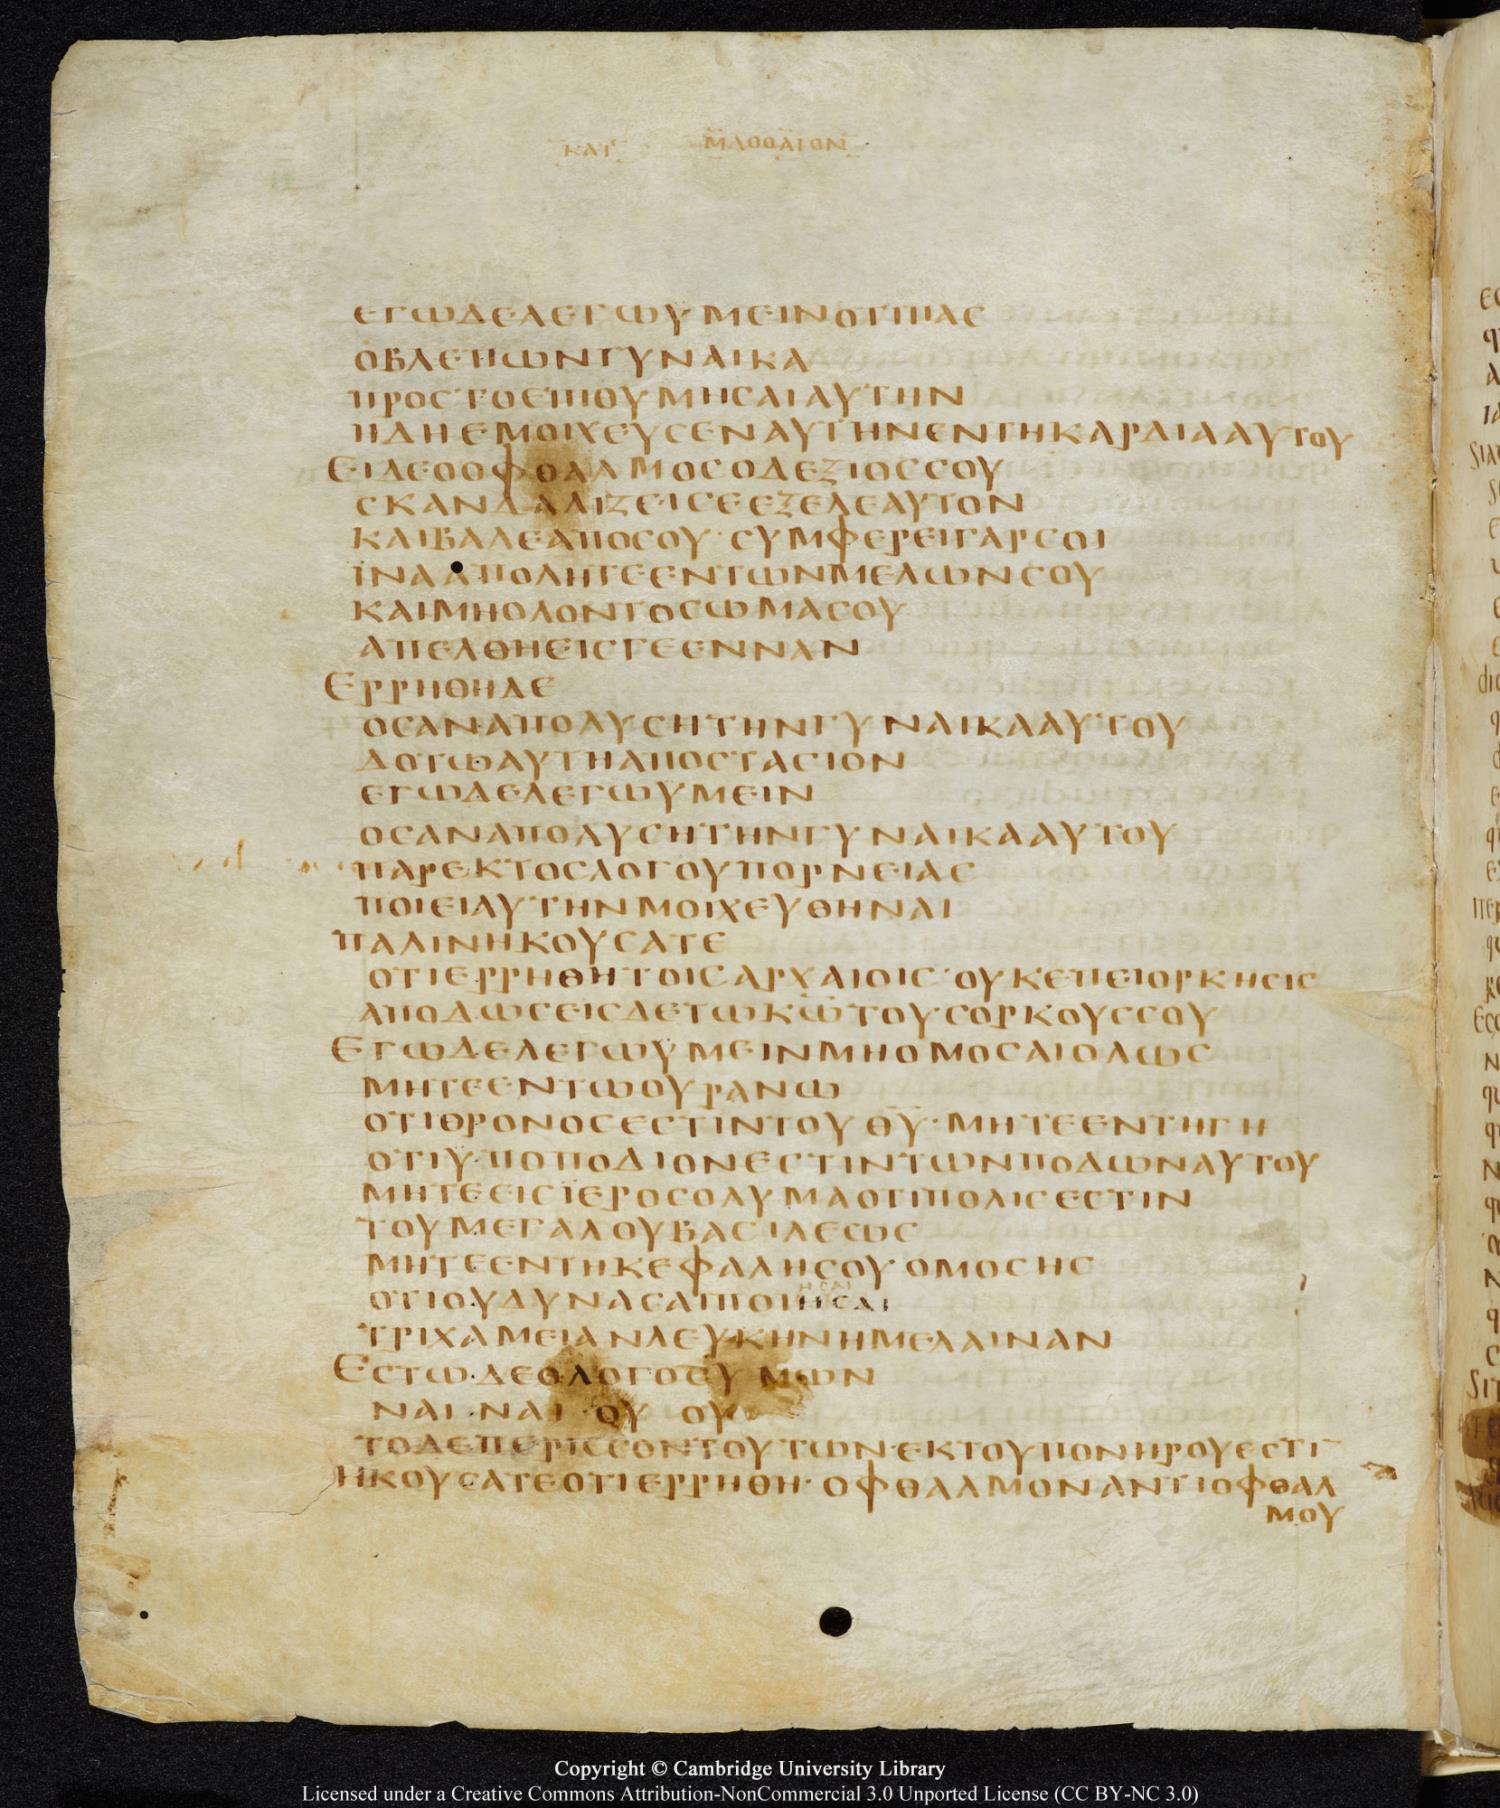 ΚΑΤ ΜΑΘΘΑΙΟΝ
ΕΓΩΔΕΛΕΓΩΥΜΕΙΝΟΤΙΠΑΣ
ΟΒΛΕΠΩΝΓΥΝΑΙΚΑ
ΠΡΟΣΤΟΕΠΙΘΥΜΗΣΑΙΑΥΤΗΝ
ΗΔΗΕΜΟΙΧΕΥΣΕΝΑΥΤΗΝΕΝΤΗΚΑΡΔΙΑΑΥΤΟΥ
ΕΙΔΕΟΟΦΘΑΛΜΟΣΟΔΕΞΙΟΣΣΟΥ
ΣΚΑΝΔΑΛΙΖΕΙΣΕΕΞΕΛΕΑΥΤΟΝ
ΚΑΙΒΑΛΕΑΠΟΣΟΥ·ΣΥΜΦΕΡΕΙΓΑΡΣΟΙ
ΪΝΑΑΠΟΛΗΤΕΕΝΤΩΝΜΕΛΩΝΣΟΥ
ΚΑΙΜΗΟΛΟΝΤΟΣΩΜΑΣΟΥ
ΑΠΕΛΘΗΕΙΣΓΕΕΝΝΑΝ
ΕΡΡΗΘΗΔΕ
ΟΣΑΝΑΠΟΛΥΣΗΤΗΝΓΥΝΑΙΚΑΑΥΤΟΥ
ΔΟΤΩΑΥΤΗΑΠΟΣΤΑΣΙΟΝ
ΕΓΩΔΕΛΕΓΩΥΜΕΙΝ
ΟΣΑΝΑΠΟΛΥΣΗΤΗΝΓΥΝΑΙΚΑΑΥΤΟΥ
ΠΑΡΕΚΤΟΣΛΟΓΟΥΠΟΡΝΕΙΑΣ
ΠΟΙΕΙΑΥΤΗΝΜΟΙΧΕΥΘΗΝΑΙ
ΠΑΛΙΝΗΚΟΥΣΑΤΕ
ΟΤΙΕΡΡΗΘΗΤΟΙΣΑΡΧΑΙΟΙΣ·ΟΥΚΕΠΕΙΟΡΚΗΣΙΣ
ΑΠΟΔΩΣΕΙΣΔΕΤΩΚΩ̅ΤΟΥΣΟΡΚΟΥΣΣΟΥ
ΕΓΩΔΕΛΕΓΩΥΜΕΙΝΜΗΟΜΟΣΑΙΟΛΩΣ
ΜΗΤΕΕΝΤΩΟΥΡΑΝΩ
ΟΤΙΘΡΟΝΟΣΕΣΤΙΝΤΟΥΘ̅Υ̅·ΜΗΤΕΕΝΤΗΓΗ
ΟΤΙΥΠΟΠΟΔΙΟΝΕΣΤΙΝΤΩΝΠΟΔΩΝΑΥΤΟΥ
ΜΗΤΕΕΙΣΪΕΡΟΣΟΛΥΜΑΟΤΙΠΟΛΙΣΕΣΤΙΝ
ΤΟΥΜΕΓΑΛΟΥΒΑΣΙΛΕΩΣ
ΜΗΤΕΕΝΤΗΚΕΦΑΛΗΣΟΥΟΜΟΣΗΣ
ΟΤΙΟΥΔΥΝΑΣΑΙΠΟΙΗΣΑΙ
ΤΡΙΧΑΜΕΙΑΝΛΕΥΚΗΝΗΜΕΛΑΙΝΑΝ
ΕΣΤΩ·ΔΕΟΛΟΓΟΣΥΜΩΝ
ΝΑΙ·ΝΑΙ ΟΥ ΟΥ
ΤΟΔΕΠΕΡΙΣΣΟΝΤΟΥΤΩΝ·ΕΚΤΟΥΠΟΝΗΡΟΥΕΣΤΙ̅
ΗΚΟΥΣΑΤΕΟΤΙΕΡΡΗΘΗ·ΟΦΘΑΛΜΟΝΑΝΤΙΟΦΘΑΛ
ΜΟΥ
Copyright © Cambridge University Library
Licensed under a Creative Commons Attribution-NonCommercial 3.0 Unported License (CC BY-NC 3.0)